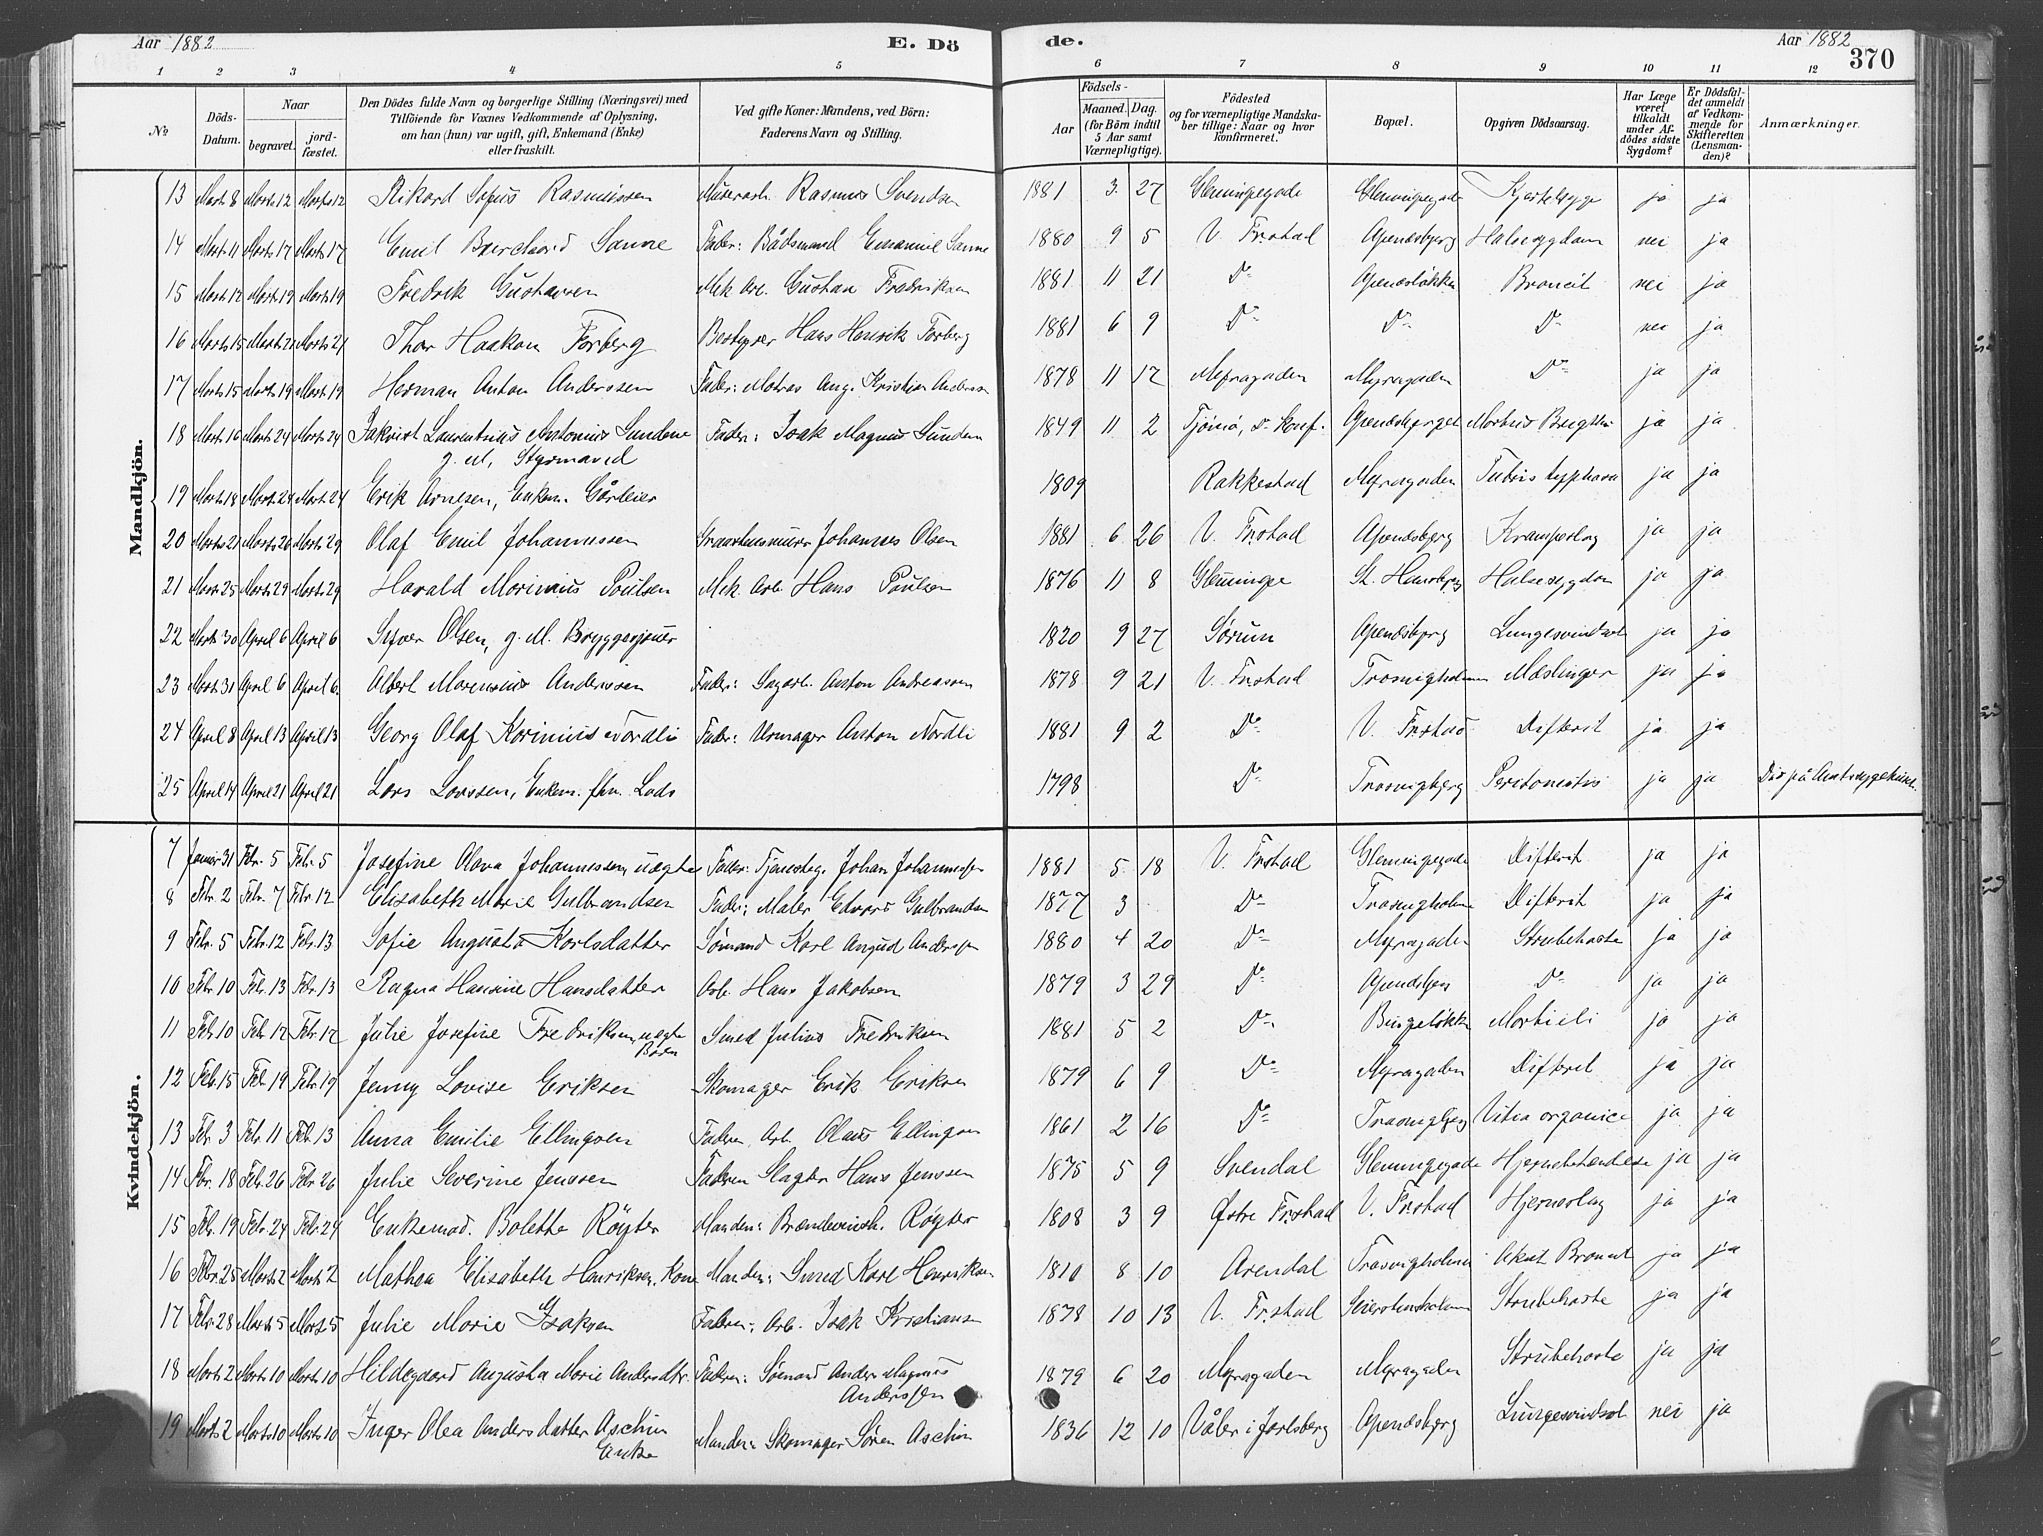 Aar 1882 E. Dö de. Aar 1882 370
1 2 3 4 5 6 7 8 9 10 11 12
No Döds-Datum. Naar begravet. jordfæstet. Den Dödes fulde Navn og borgerlige Stilling (Næringsvei) med Tilföiende for Voxnes Vedkommende af Oplysning, om han (hun) var ugift, gift, Enkemand (Enke) eller fraskilt. Ved gifte Koner: Mandens, ved Börn: Faderens Navn og Stilling. Födsels- Aar Maaned. Dag. (for Börn indtil 5 Aar samt Værnepligtige). Födested og for værnepligtige Mandskaber tillige: Naar og hvor konfirmeret. Bopæl. Opgiven Dödsaarsag. Har Læge været tilkaldt under Afdödes sidste Sygdom? Er Dödsfaldet anmeldt af Vedkommende for Skifteretten (Lensmanden)? Anmærkninger.
Mandkjön.
13 Marts 8 Marts 12 Marts 12 Rikard Sofus Rasmussen Murerarb. Rasmus Svendsen 1881 3 27 Glemmingegade Glemmingegade ja ja
14 Marts 11 Marts 17 Marts 17 Emil Sanne Fader: Bådsmand Emanuel Sanne 1880 9 5 V. Frstad Apenæsbjerg Halssygdom nei ja
15 Marts 12 Marts 19 Marts 19 Fredrik Gustavsen Mek Arb. Gustav Fredriksen 1881 11 21 Do Apenæsløkken Broncit nei ja
16 Marts 15 Marts 21 Marts 21 Thor Haakon Torberg Bestyrer Hans Henrik Torberg 1881 6 9 Do Do Do nei ja
17 Marts 15 Marts 19 Marts 19 Herman Anton Anderssen Fader: Matros Aug. Kristian Andersen 1878 11 17 Myragaden Myragaden Do ja ja
18 Marts 16 Marts 24 Marts 24 Laurentius Antonius Sundene Fader: Isak Magnus Sunden 1849 11 2 Tjømø, Apenæsbjerget Morbus Brigthii ja ja
g. M. Styrmand
19 Marts 18 Marts 24 Marts 24 Erik Arnesen, Enkem. Gårdeier 1809 Rakkestad Myragaden ja ja
20 Marts 21 Marts 26 Marts 29 Olaf Emil Johannessen Johannes Olsen 1881 6 26 V. Frstad Apenæsbjerg Krampeslag ja ja
21 Marts 25 Marts 29 Marts 29 Harald Marinius Poulsen Mek. Arb. Hans Poulsen 1876 11 8 Glemminge St. Hansbjerg Halssygdom ja ja
22 Marts 30 April 6 April 6 Syver Olsen, g. M. Bryggesjouer 1820 9 27 Sørum Apenæsbjerg Lungesvindsot ja ja
23 Marts 31 April 6 April 6 Albert Marensius Anderssen Fader: Sagarb. Anton Andreassen 1878 9 21 V. Frstad Trosvigholmen Mæslinger ja ja
24 April 8 April 13 April 13 Georg Olaf Korinius Nordli Fader: Urmager Anton Nordli 1881 9 2 Do V. Frstad Difterit ja ja
25 April 14 April 21 April 21 Lars Larssen, Enkem. fhv. Lods 1798 Do Trosvigbjerg Peritonitis ja ja Død på Amtssygehuset.
Kvindekjön.
7 Januar 31 Febr. 5 Febr. 5 Josefine Olava Johannessen, uægte Fader: Johan Johannessen 1881 5 18 V. Frstad Glemmingegade Difterit ja ja
8 Febr. 2 Febr. 7 Febr. 12 Elisabeth Marie Gulbrandsen Fader: Maler Edvard Gulbrandsen 1877 3 Do Trosvigholmen Difterit ja ja
9 Febr. 5 Febr. 12 Febr. 13 Sofie Augusta Karlsdatter Sømand Karl August Anderssen 1880 4 20 Do Myragaden Strubehoste ja ja
10 Febr. 10 Febr. 13 Febr. 13 Ragna Hansine Hansdatter Arb. Hans Jakobsen 1879 3 29 Do Do ja ja
11 Febr. 10 Febr. 12 Febr. 12 Julie Josefine Fredriksen, uægte Barn Smed Julius Fredriksen 1881 5 2 Do Bingeløkken Morbilli ja ja
12 Febr. 15 Febr. 19 Febr. 19 Jenny Lovise Eriksen Skomager Erik Eriksen 1879 6 9 Do Myragaden Difterit ja ja
13 Febr. 3 Febr. 11 Febr. 13 Anna Emilie Ellingsen Faderen Arb. Olaus Ellingsen 1861 2 16 Do Trosvigbjerg Vitia organica ja ja
14 Febr. 18 Febr. 26 Febr. 26 Julie Severine Jenssen Faderen Slagter Hans Jenssen 1875 5 9 Svendal Glemmingegade Hjernebetændelse ja ja
15 Febr. 19 Febr. 24 Febr. 24 Enkemad. Bolette Röyter Manden: Brændevinsh. Röyter 1808 3 9 Østre Frstad V. Frstad Hjerneslag ja ja
16 Febr. 25 Marts 2 Marts 2 Mathea Elisabeth Henriksen, Kone Manden: Smed Karl Henriksen 1810 8 10 Arendal Trosvigholmen Akut Broncit ja ja
17 Febr. 28 Marts 5 Marts 5 Julie Marie Isaksen Faderen: Arb. Isak Kristiansen 1878 10 13 V. Frstad Strubehoste ja ja
18 Marts 2 Marts 10 Marts 10 Hildegaard Augusta Marie Andersdtr. Faderen: Sømand Anders Magnus 1879 6 20 Myragaden Myragaden Strubehoste ja ja
Anderssen
19 Marts 2 Marts 10 Marts 10 Inger Olea Andersdatter Aschim Manden: Skomager Søren Aschim 1836 12 10 Våler i Jarlsberg Apenæsbjerg Lungesvindsot nei ja
Enke